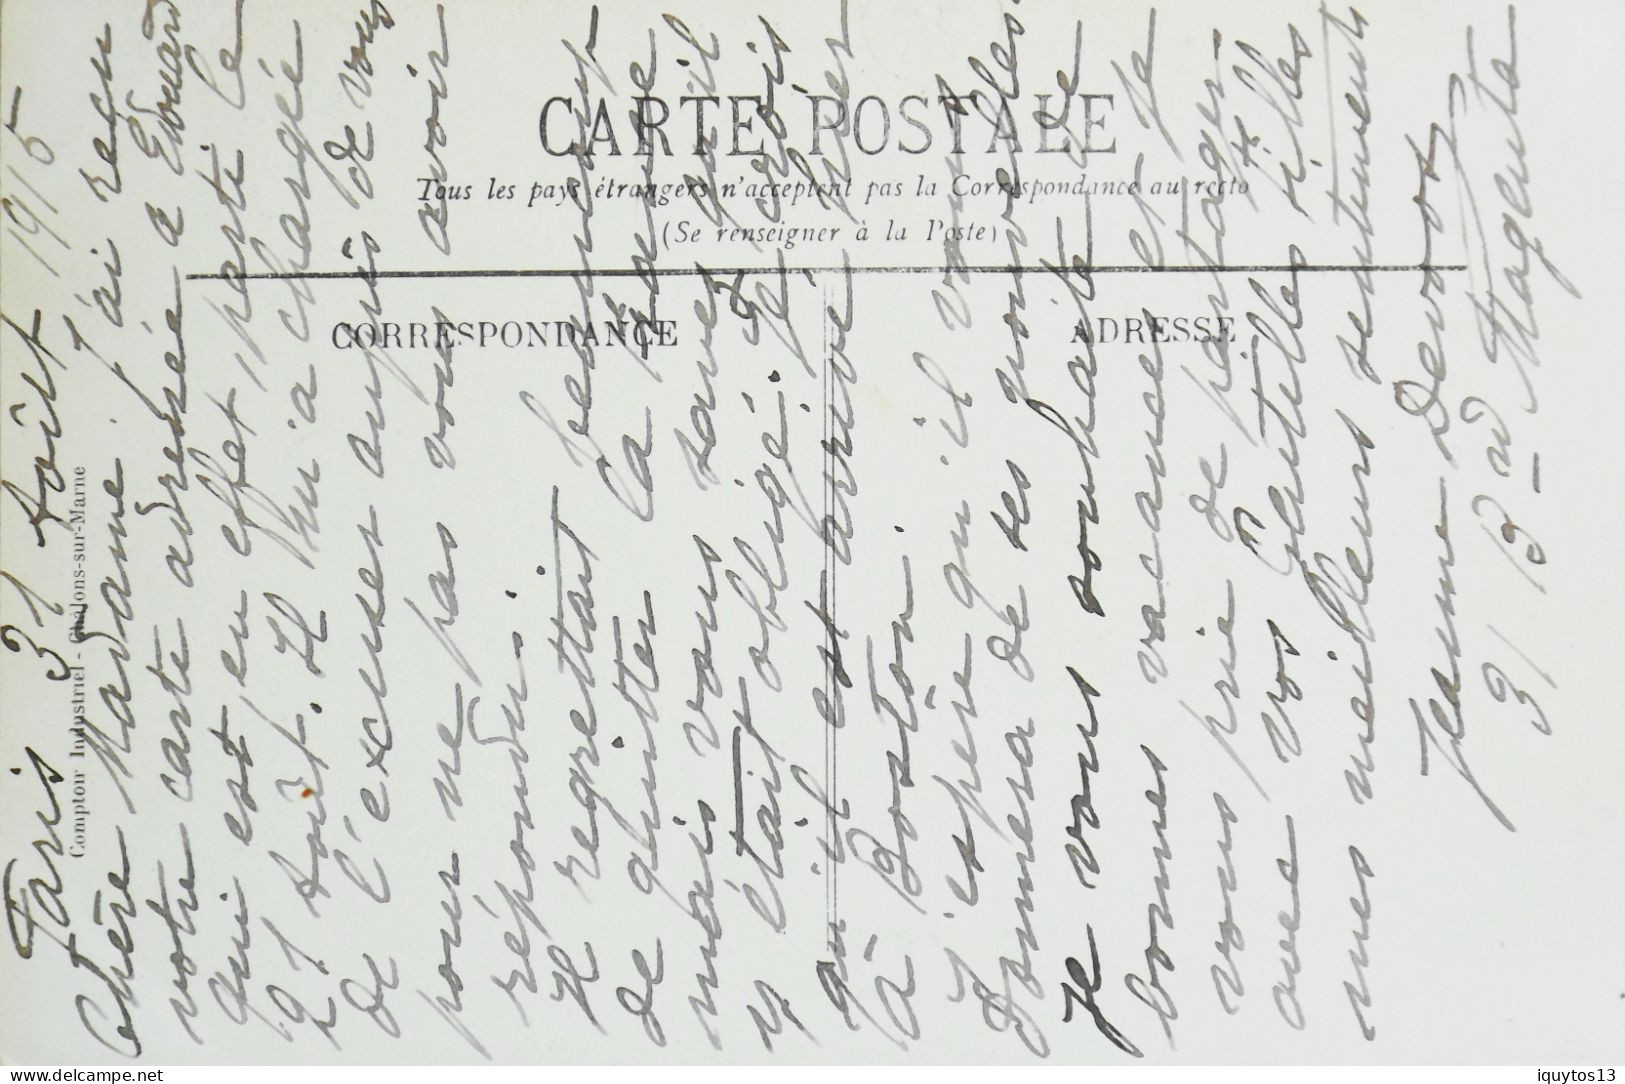 CARTE POSTALE
Tous les pays étrangers n'acceptent pas la Correspondance au recto
(Se renseigner à la Poste)
CORRESPONDANCE
ADRESSE
Comptoir Industriel - Châlons-sur-Marne
Paris 31 Août 1915
Chère Madame. J'ai reçu
votre carte adressée à Edouard
qui est en effet parti le
21 Août. Il m'a chargée
de l'excuser auprès de vous
pour ne pas vous avoir
répondu.
Il regrettait beaucoup
de quitter la
mais vous savez qu'il
y était obligé. Je crois
qu'il est arrivé hier
à Boston.
J'espère qu'il vous
Donnera de ses nouvelles.
Je vous souhaite de
bonnes vacances et Je
vous prie de partager
avec vos Gentilles filles
mes meilleurs sentiments
Jeanne Devoor
31 Bd Magenta
www.delcampe.net
iquytos13